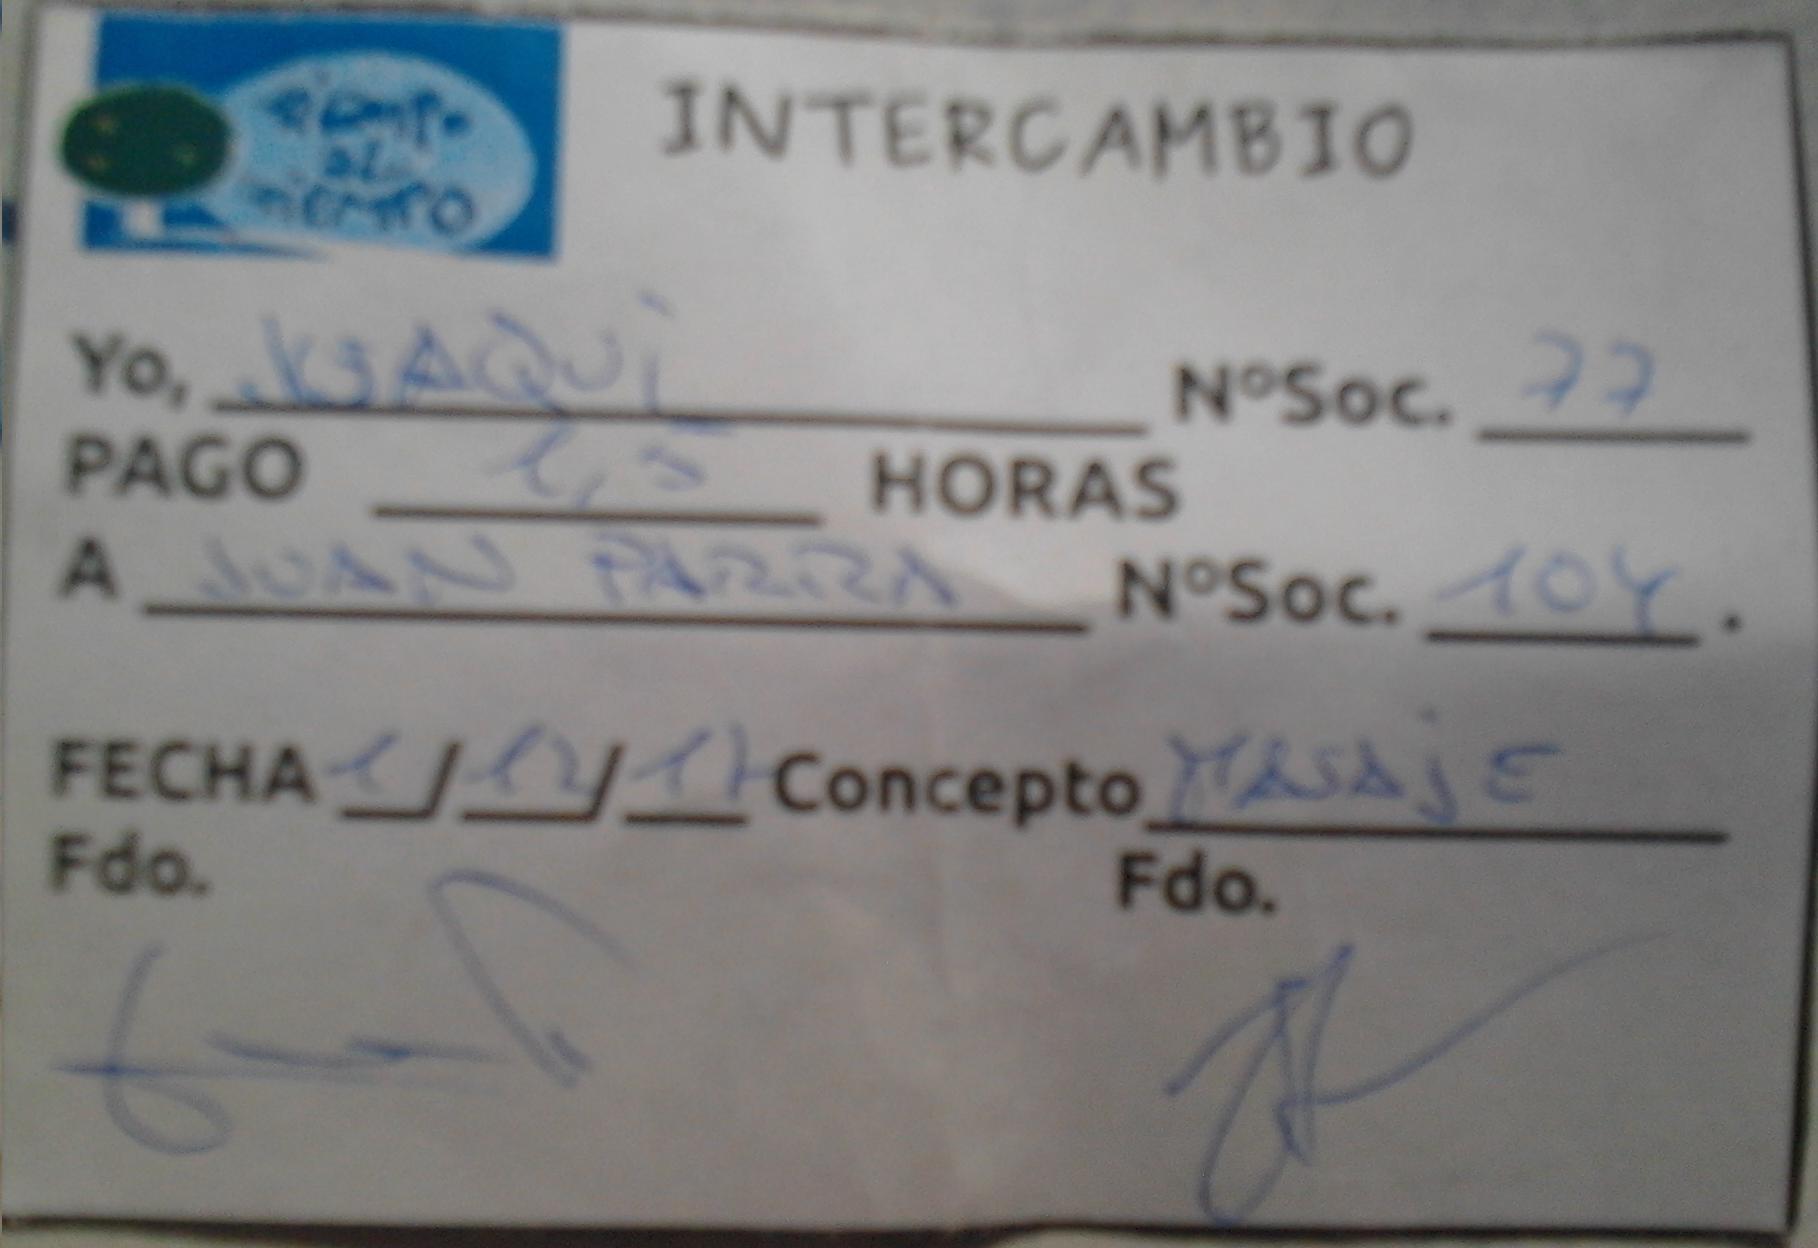 Tiempo
al
Tiempo
INTERCAMBIO
Yo, JOAQUI NºSoc. 77
PAGO 1,5 HORAS
A JUAN PARRA NºSoc. 104.
FECHA 1/12/17 Concepto MASAJE
Fdo. Fdo.